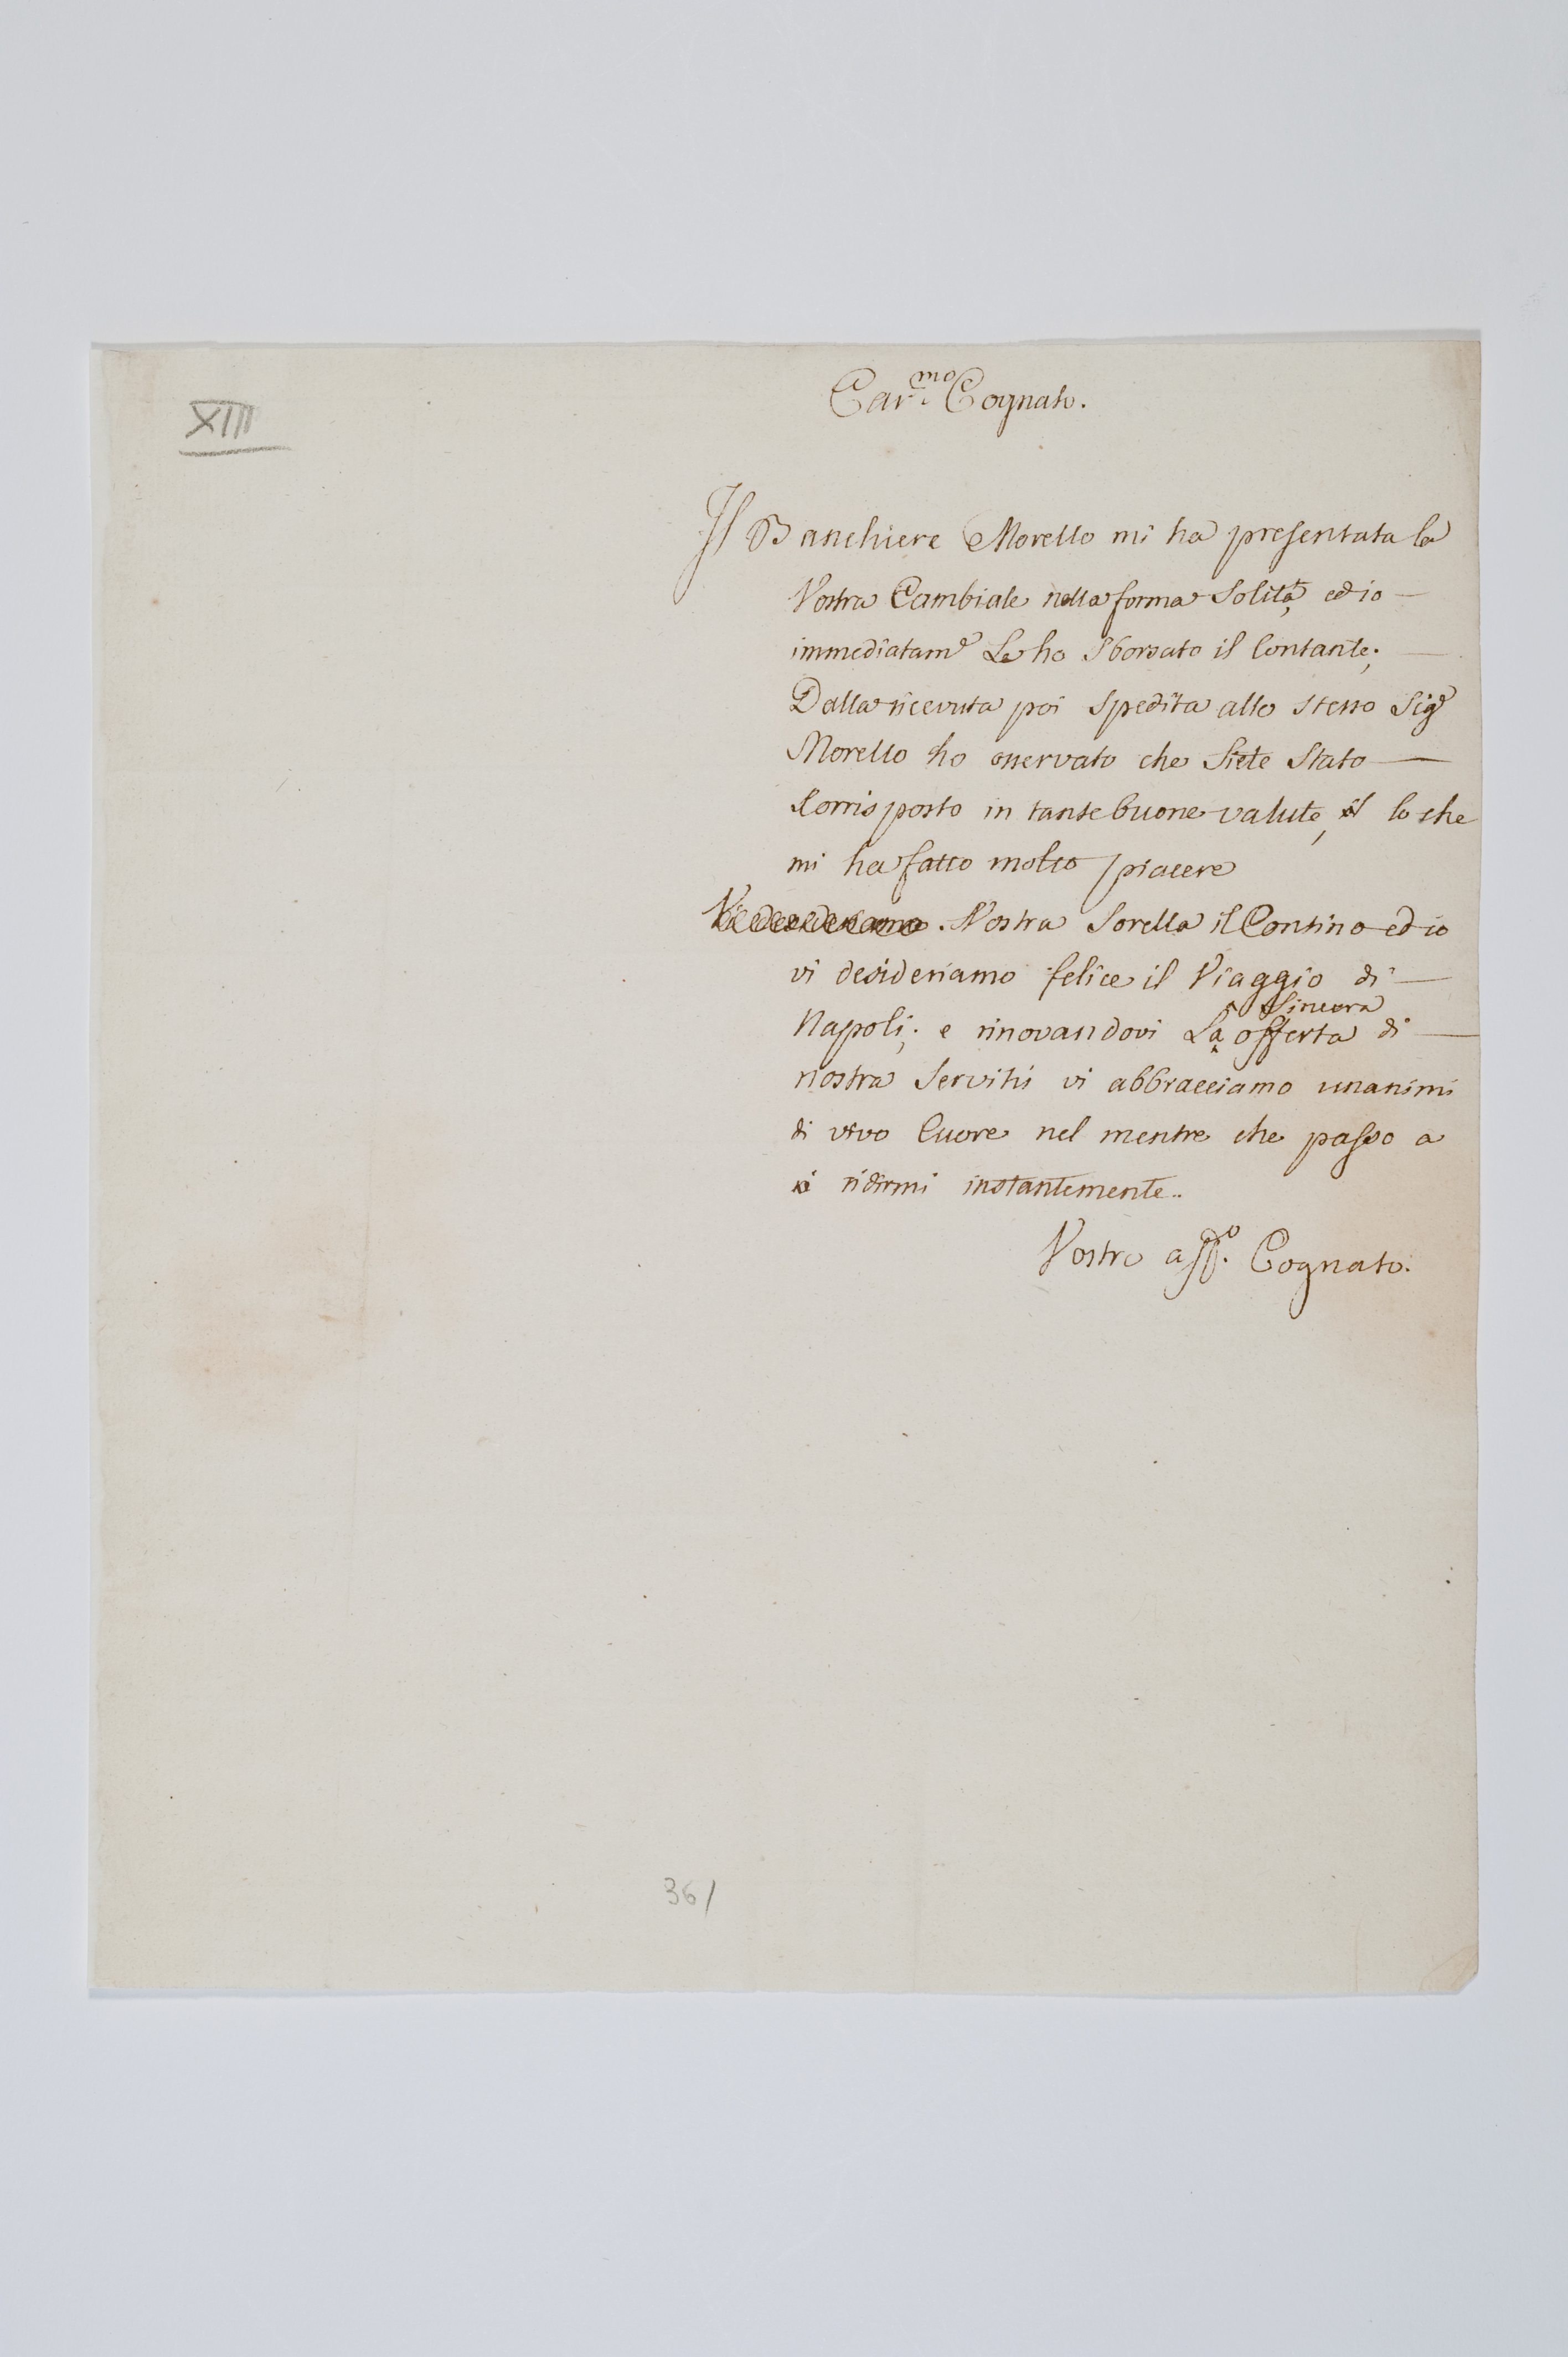 XIII
Car.mo Cognato.
Il Banchiere Morello mi ha presentata la
Vostra Cambiale nella forma Solita, ed io —
immediatame Le ho Sborsato il Contante; —
Dalla ricevuta poi Spedita allo stesso Sigr
Morello ho osservato che Siete Stato —
Corrisposto in tante buone valute, lo che
mi ha fatto molto piacere
Vi desideriamo. Vostra Sorella il Contino ed io
vi desideriamo felice il Viaggio di —
Sincera
Napoli; e rinovandovi La offerta di —
nostra Servitù vi abbracciamo unanimi
di vivo Cuore nel mentre che passo a
ridirmi instantemente..
Vostro aff.o Cognato.
361